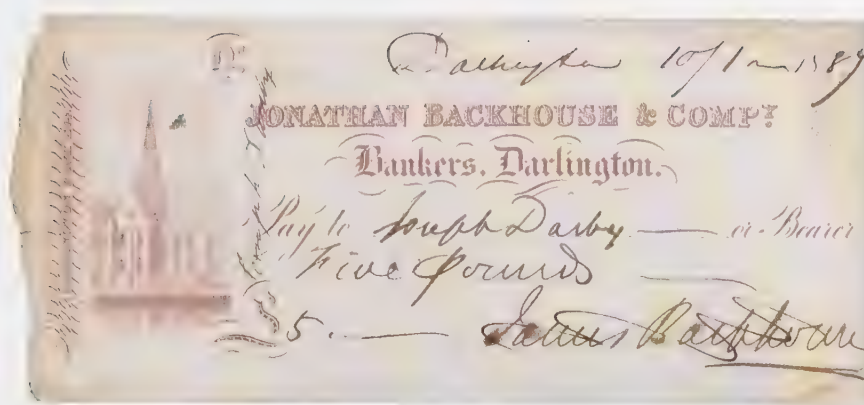 Darlington 10/1 m 1889
JONATHAN BACKHOUSE & COMPY.
Bankers, Darlington.
Pay to Joseph Darby — or Bearer
Five Pounds —
£5. —
James Backhouse
Joseph Darby